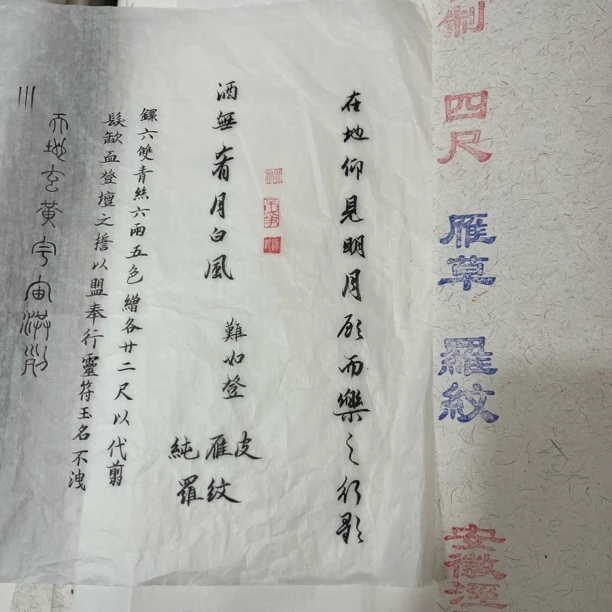 制 四尺 雁草 羅紋 安徽涇
在地仰見明月顧而樂之行歌
難如登
酒無肴月白風
純雁皮
羅紋
鏍六雙青絲六兩五色繒各廿二尺以代翦
髮歃血登壇之誓以盟奉行靈符玉名不洩
天地玄黃宇宙洪荒